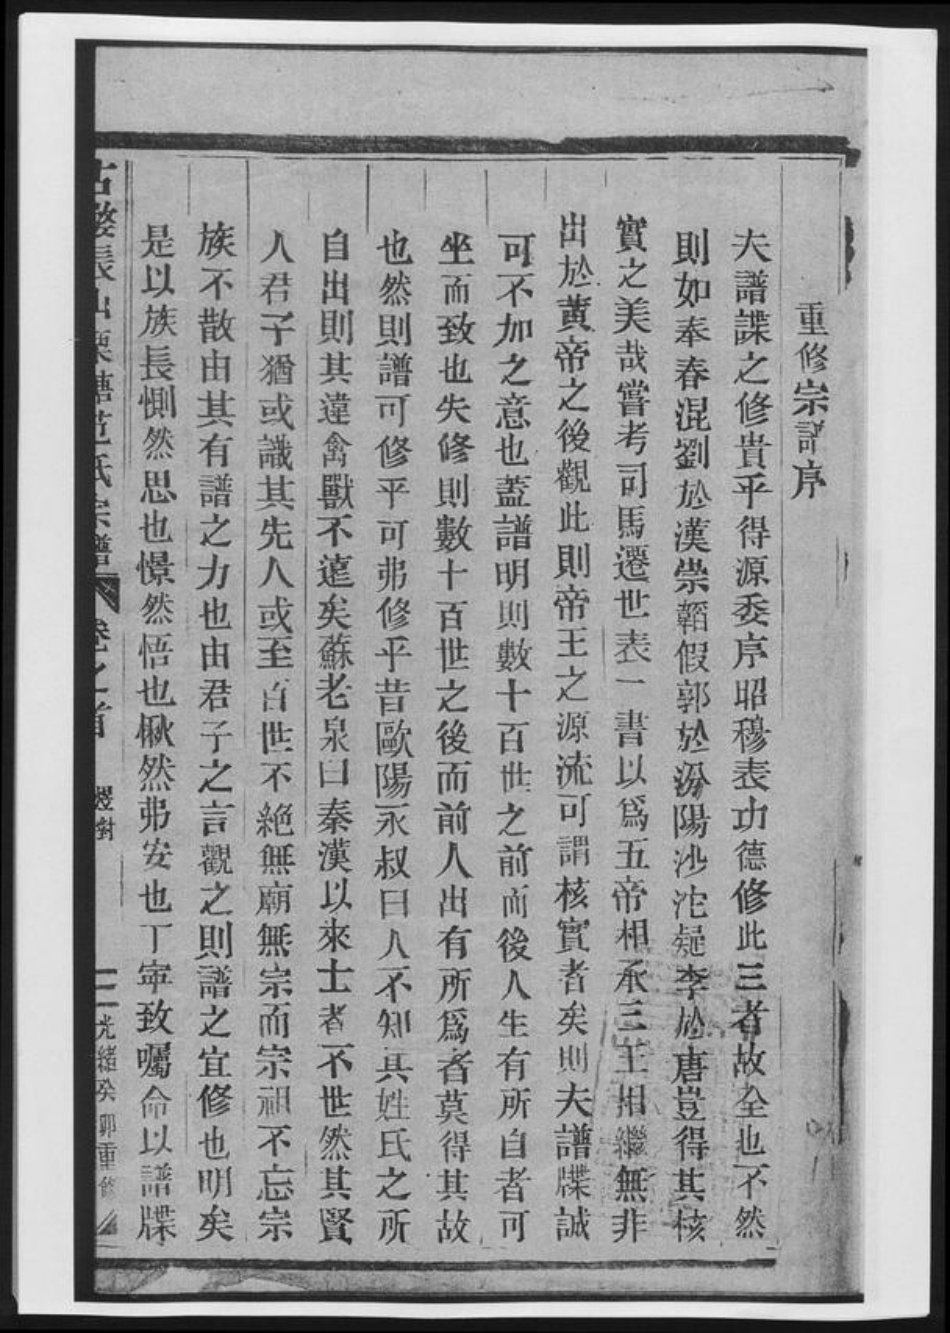 重修宗譜序
夫譜諜之修貴乎得源委序昭穆表功德修此三者故全也不然
則如奉春混劉於漢崇韜假郭於汾陽沙沱疑李於唐豈得其核
實之美哉嘗考司馬遷世表一書以爲五帝相承三王相繼無非
出於黃帝之後觀此則帝王之源流可謂核實者矣則夫譜牒誠
可不加之意也蓋譜明則數十百世之前而後人生有所自者可
坐而致也失修則數十百世之後而前人出有所爲者莫得其故
也然則譜可修乎可弗修乎昔歐陽永叔曰人不知其姓氏之所
自出則其違禽獸不遠矣蘇老泉曰秦漢以來士者不世然其賢
人君子猶或識其先人或至百世不絕無廟無宗而宗祖不忘宗
族不散由其有譜之力也由君子之言觀之則譜之宜修也明矣
是以族長惻然思也憬然悟也愀然弗安也丁寧致囑命以譜牒
古婺長山栗塘范氏宗譜 卷之首 燈對 二 光緒癸卯重修